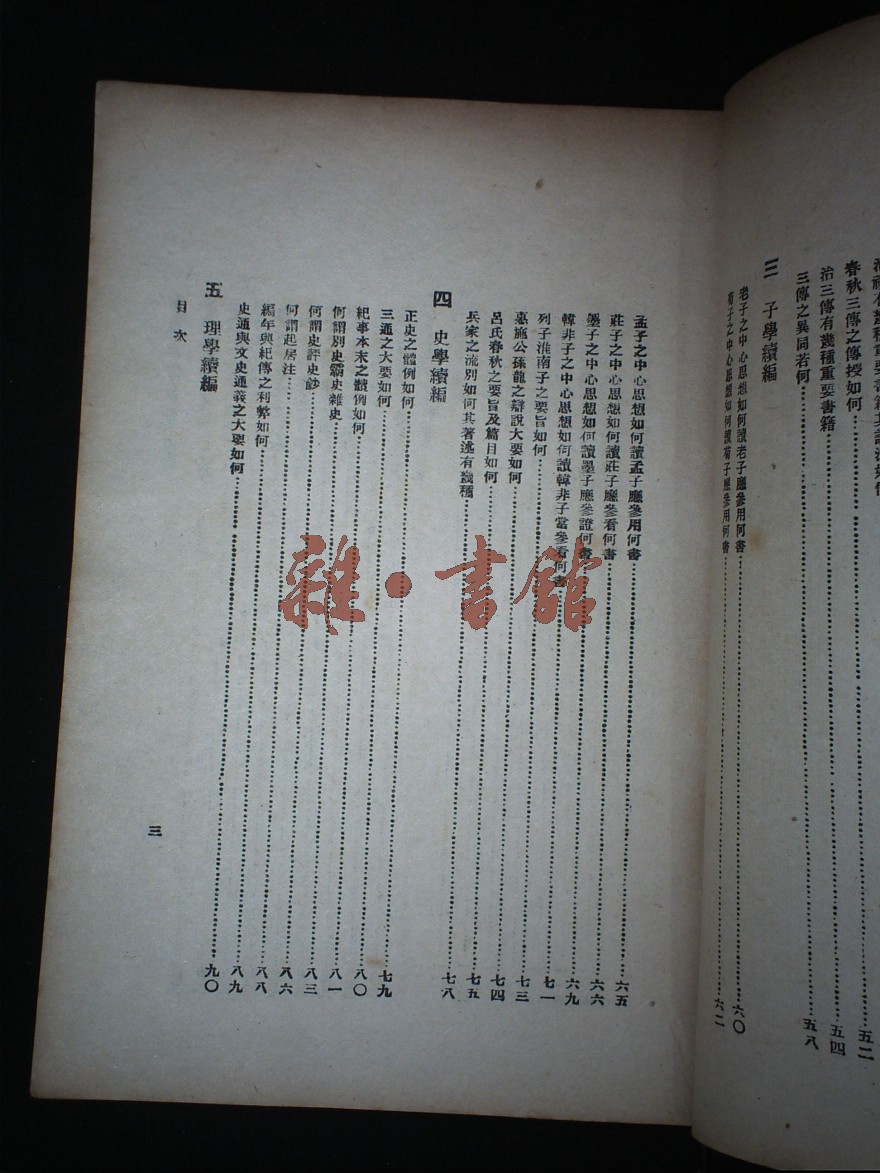 春秋三傳之傳授如何……五二
治三傳有幾種重要書籍……五四
三傳之異同若何……五八
三 子學續編
老子之中心思想如何讀老子應參用何書……六〇
荀子之中心思想如何讀荀子應參用何書……六二
孟子之中心思想如何讀孟子應參用何書……六五
莊子之中心思想如何讀莊子應參看何書……六六
墨子之中心思想如何讀墨子應參證何書……六九
韓非子之中心思想如何讀韓非子當參看何書……七一
列子淮南子之要旨如何……七三
惠施公孫龍之辯說大要如何……七四
呂氏春秋之要旨及篇目如何……七五
兵家之流別如何其著述有幾種……七八
四 史學續編
正史之體例如何……七九
三通之大要如何……八〇
紀事本末之體例如何……八一
何謂別史霸史雜史……八三
何謂史評史鈔……八六
何謂起居注……八八
編年與紀傳之利弊如何……八九
史通與文史通義之大要如何……九〇
五 理學續編
目次
三
雜·書館